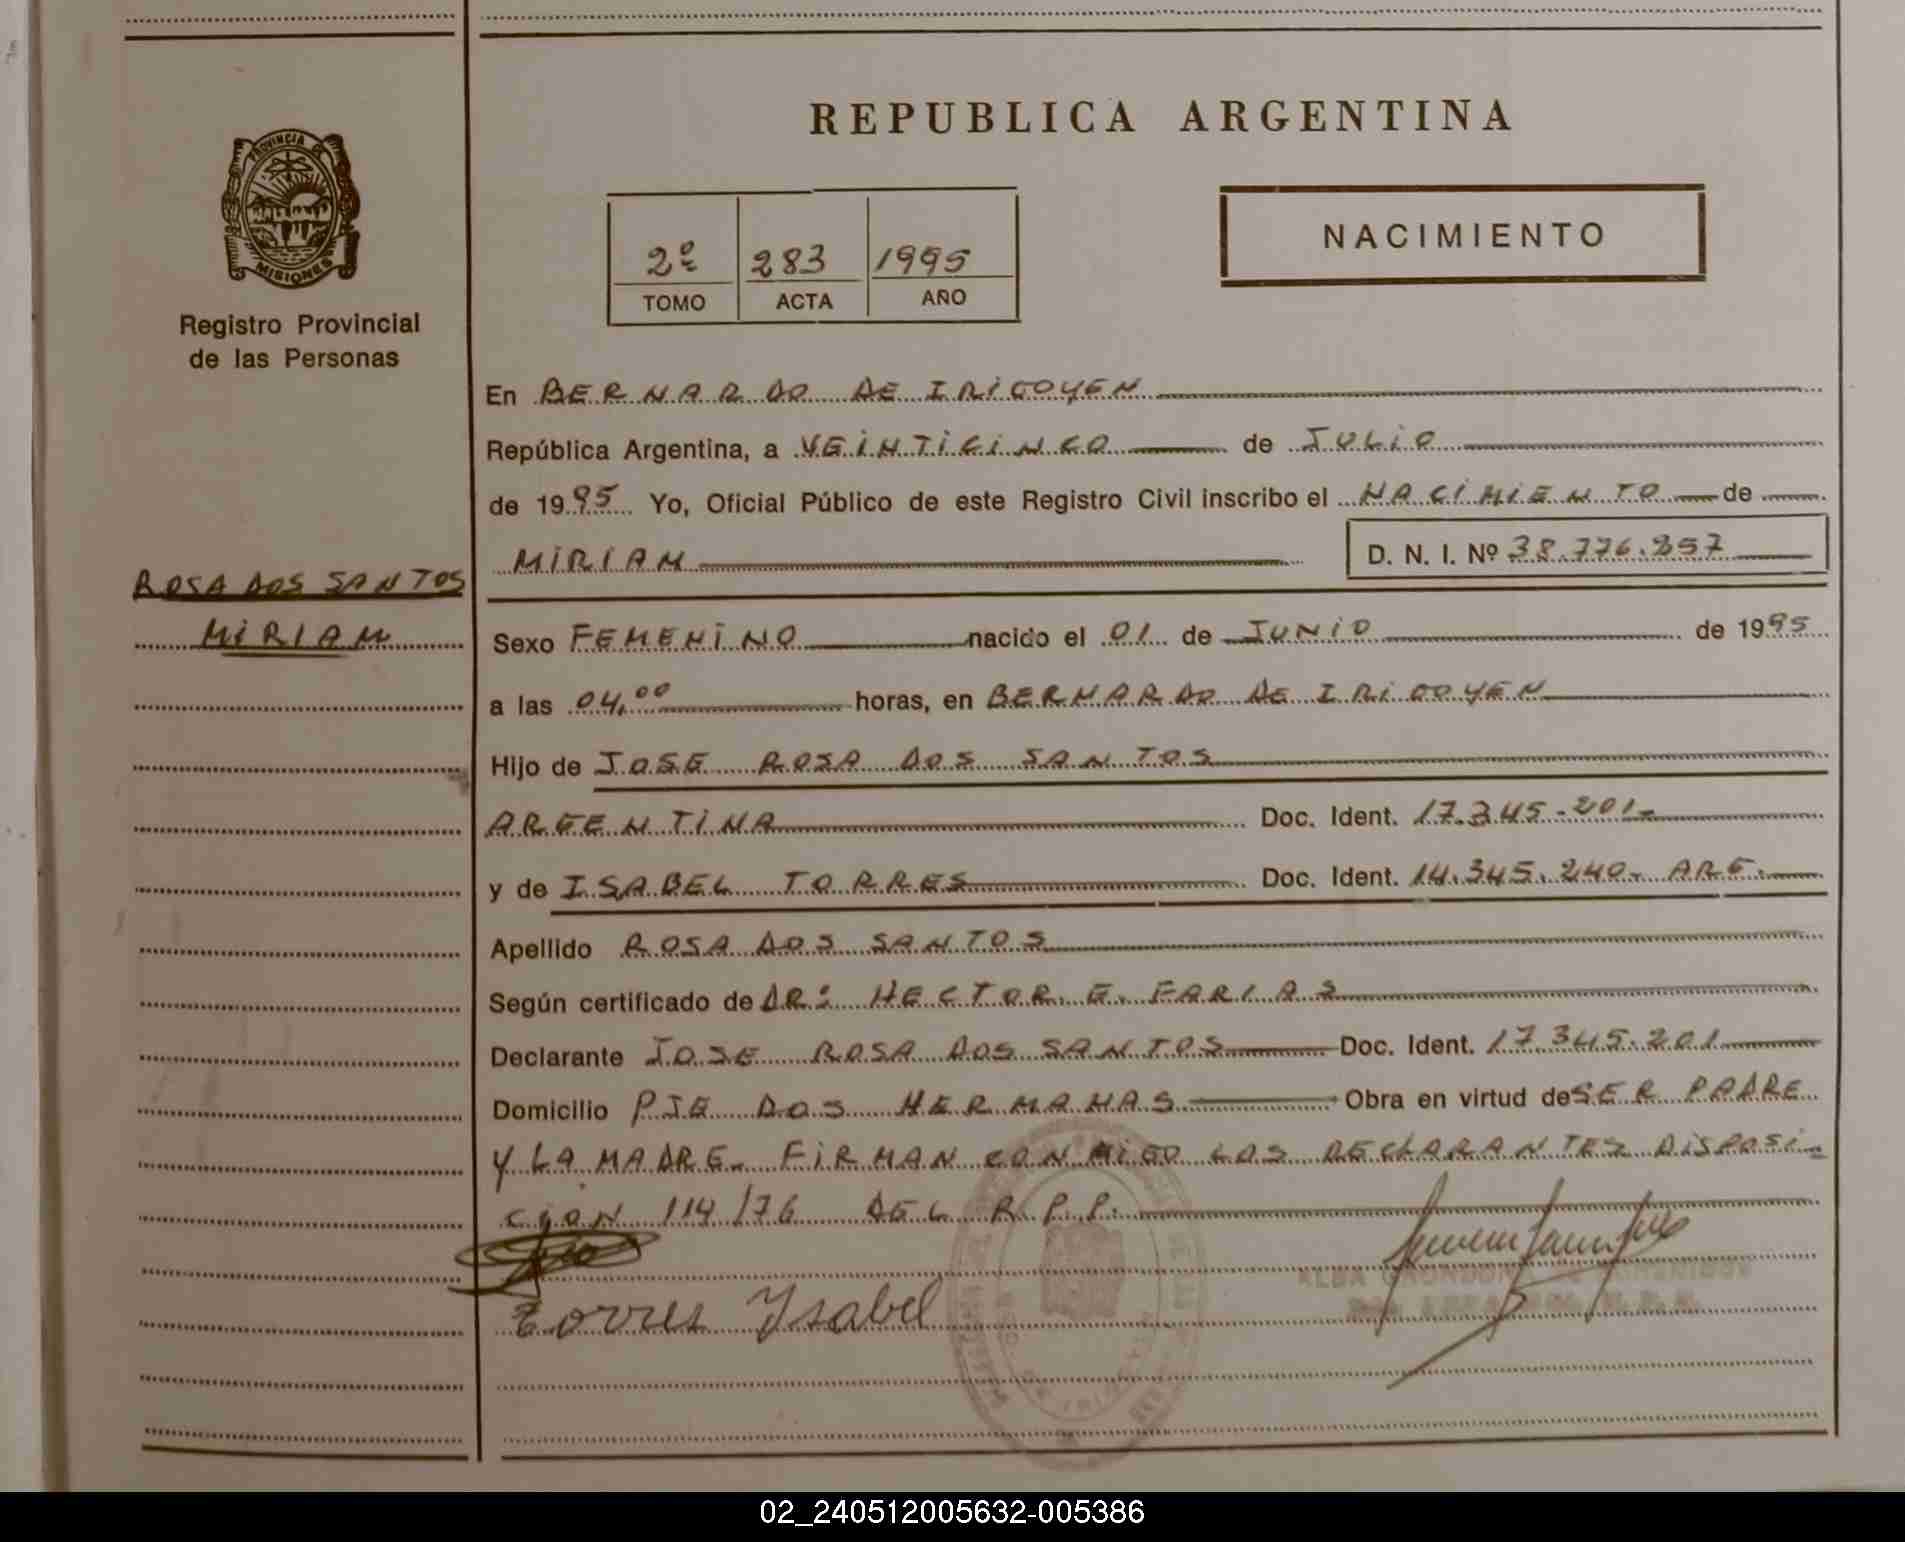 REPUBLICA ARGENTINA
PROVINCIA DE
MISIONES
Registro Provincial
de las Personas
2º 283 1995
TOMO ACTA AÑO
NACIMIENTO
En BERNARDO DE IRIGOYEN
República Argentina, a VEINTICINCO de JULIO
de 1995 Yo, Oficial Público de este Registro Civil inscribo el NACIMIENTO de
MIRIAM D. N. I. Nº 38.776.857
ROSA DOS SANTOS
MIRIAM
Sexo FEMENINO nacido el 01 de JUNIO de 1995
a las 04,00 horas, en BERNARDO DE IRIGOYEN
Hijo de JOSE ROSA DOS SANTOS
ARGENTINA Doc. Ident. 17.345.201-
y de ISABEL TORRES Doc. Ident. 14.345.240- ARG.
Apellido ROSA DOS SANTOS
Según certificado de DR: HECTOR E. FARIAS
Declarante JOSE ROSA DOS SANTOS Doc. Ident. 17.345.201
Domicilio PJE DOS HERMANAS Obra en virtud de SER PADRE
Y LA MADRE. FIRMAN CONMIGO LOS DECLARANTES DISPOSI-
CION 114/76 DEL R.P.P.
Torres Ysabel
02_240512005632-005386